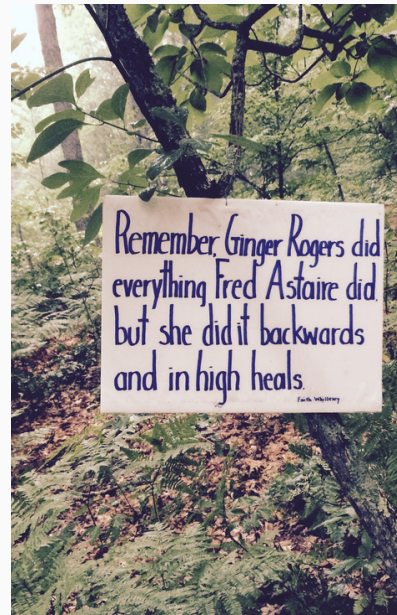 Remember, Ginger Rogers did
everything Fred Astaire did,
but she did it backwards
and in high heals.
Faith Whittlesey